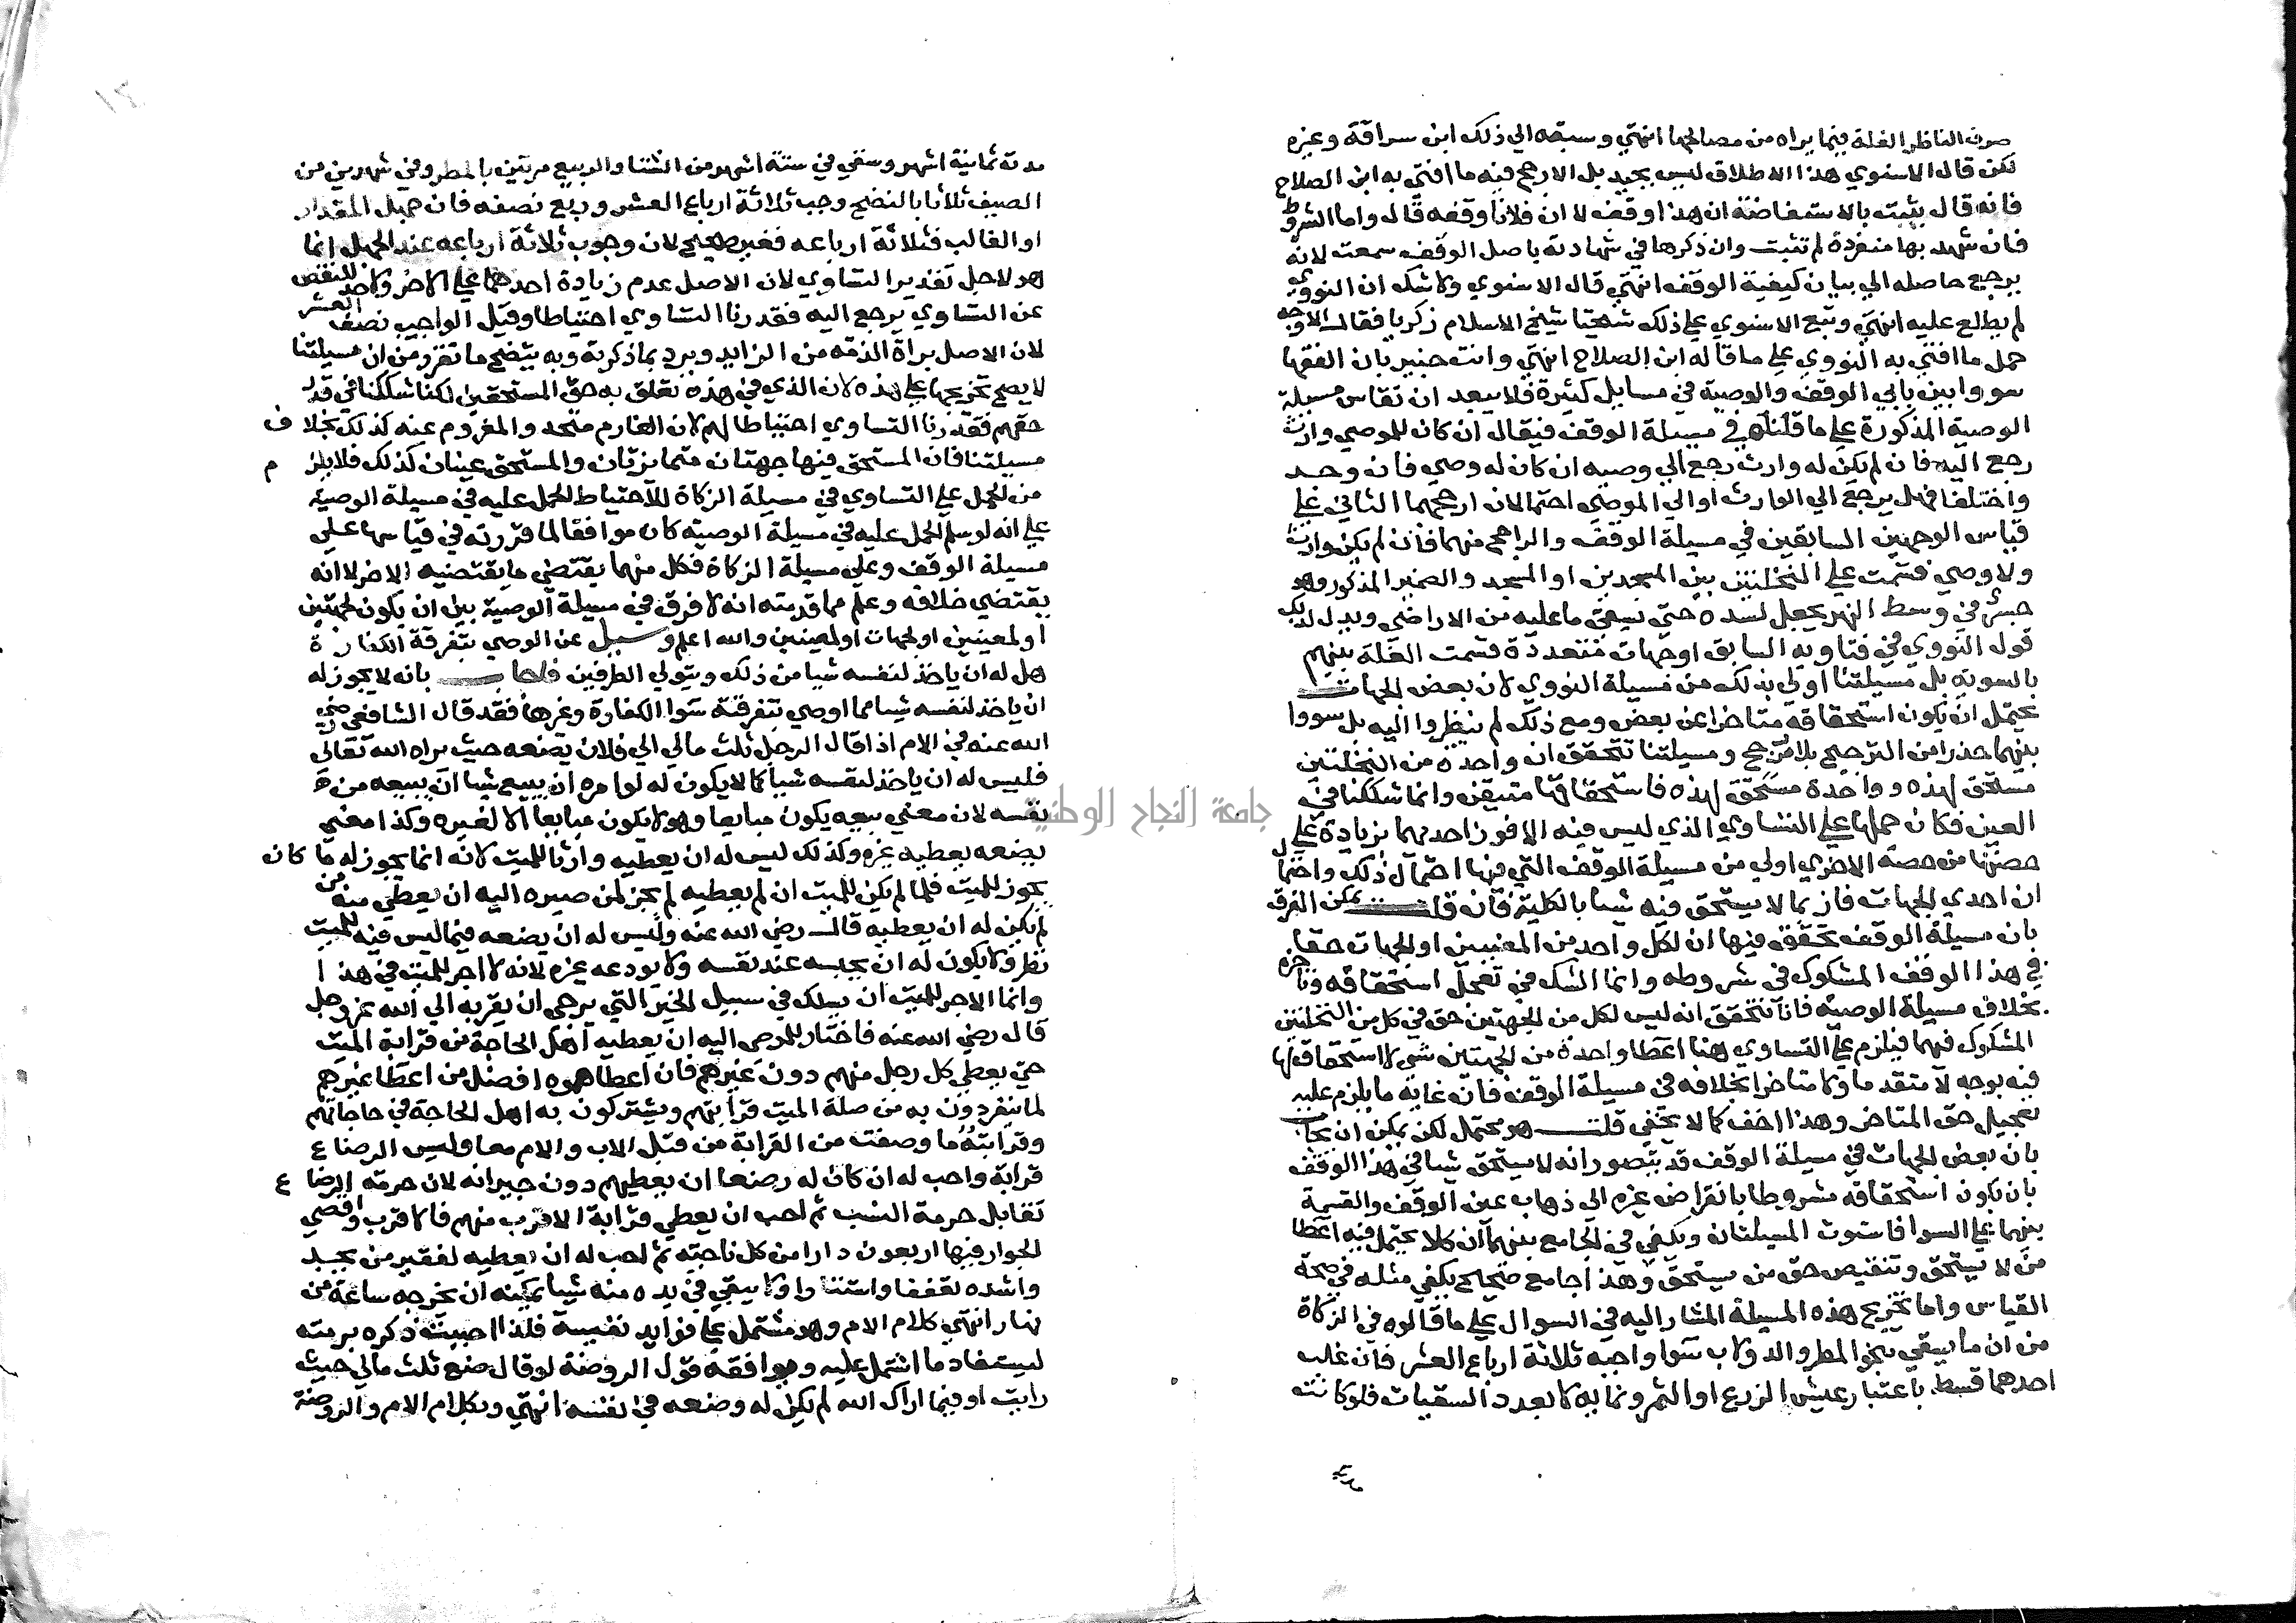 صرف الناظر الغلة فيما يراه من مصالحها انتهي وسبقه الي ذلك ابن سراقة وغيره
لكن قال الاسنوي هذا الاطلاق ليس بجيد بل الارجح فيه ما افتي به ابن الصلاح
فانه قال يثبت بالاستفاضة ان هذا وقف لا ان فلانا وقفه قال واما الشروط
فان شهد بها منفردة لم تثبت وان ذكرها في شهادته باصل الوقف سمعت لانه
يرجع حاصله الي بيان كيفية الوقف انتهي قال الاسنوي ولا شك ان النووي
لم يطلع عليه انتهي وتبع الاسنوي علي ذلك شيخنا شيخ الاسلام زكريا فقال الاوجه
حمل ما افتي به النووي علي ما قاله ابن الصلاح انتهي وانت خبير بان الفقها
سووا بين بابي الوقف والوصية في مسايل كثيرة فلا يبعد ان تقاس مسيلة
الوصية المذكورة علي ما قلناه في مسيلة الوقف فيقال ان كان للموصي وارث
رجع اليه فان لم يكن له وارث رجع الي وصيه ان كان له وصي فان وجد
واختلفا فهل يرجع الي الوارث او الي الموصي احتمالان ارجحهما الثاني علي
قياس الوجهين السابقين في مسيلة الوقف والراجح منهما فان لم يكن وارث
ولا وصي قسمت علي النخلتين بين المسجدين او المسجد والصنبر المذكور وهو
جسر في وسط النهر يجعل لسده حتي يسقي ما عليه من الاراضي ويدل لذلك
قول النووي في فتاويه السابق او جهات متعددة قسمت الغلة بينهم
بالسوية بل مسيلتنا اولي بذلك من مسيلة النووي لان بعض الجهات
يحتمل ان يكون استحقاقه متاخرا عن بعض ومع ذلك لم ينظروا اليه بل سووا
بينهما حذرا من الترجيح بلا مرجح ومسيلتنا تتحقق ان واحدة من النخلتين
مستحق لهذه وواحدة مستحق لهذه فاستحقاقها متيقن وانما شككنا في
العين فكان حملها علي التساوي الذي ليس فيه الا فوز احدهما بزيادة علي
حصتها من حصة الاخري اولي من مسيلة الوقف التي فيها احتمال ذلك واحتمال
ان احدي الجهات فاز بما لا يستحق فيه شيا بالكلية فان قلت يمكن الفرق
بان مسيلة الوقف تحقق فيها ان لكل واحد من المعنيين او الجهات حقا
في هذا الوقف المشكوك في شروطه وانما الشك في تعجل استحقاقه وتاخره
بخلاف مسيلة الوصية فانا نتحقق انه ليس لكل من الجهتين حق في كل من النخلتين
المشكوك فيهما فيلزم علي التساوي هنا اعطا واحدة من الجهتين شي لا استحقاق لها
فيه بوجه لا متقدما ولا متاخرا بخلافه في مسيلة الوقف فان غاية ما يلزم عليه
تعجيل حق المتاخر وهذا اخف كما لا يخفي قلت هو محتمل لكن يمكن ان يجاب
بان بعض الجهات في مسيلة الوقف قد يتصور انه لا يستحق شيا في هذا الوقف
بان يكون استحقاقه مشروطا بانقراض غيره الي ذهاب عين الوقف والقسمة
بينهما علي السوا فاستوت المسيلتان ويكفي في الجامع بينهما ان كلا يحتمل فيه اعطا
من لا يستحق وتنقيص حق من يستحق وهذا جامع صحيح يكفي مثله في صحة
القياس واما تخريج هذه المسيلة المشار اليه في السوال علي ما قالوه في الزكاة
من ان ما سقي بنحو المطر والدولاب سوا واجبه ثلاثة ارباع العشر فان غلب
احدهما قسط باعتبار عيش الزرع او الثمر ونمايه لا بعدد السقيات فلو كانت
مدته ثمانية اشهر وسقي في ستة اشهر من الشتا والربيع مرتين بالمطر وفي شهرين من
الصيف ثلاثا بالنضح وجب ثلاثة ارباع العشر وربع نصفه فان جهل المقدار
او الغالب فثلاثة ارباعه فغير صحيح لان وجوب ثلاثة ارباعه عند الجهل انما
هو لاجل تقدير التساوي لان الاصل عدم زيادة احدهما علي الاخر للنقص
عن التساوي يرجع اليه فقدرنا التساوي احتياطا وقيل الواجب نصف العشر
لان الاصل براة الذمة من الزايد ويرد بما ذكرته وبه يتضح ما تقرر من ان مسيلتنا
لا يصح تخريجها علي هذه لان الذي في هذه تعلق به حق المستحقين لكنا شككنا في قدر
حقهم فقدرنا التساوي احتياطا لهم لان الغارم متحد والمغروم عنه كذلك بخلاف
مسيلتنا فان المستحق فيها جهتان متمايزتان والمستحق عينان كذلك فلا يلزم
من الحمل علي التساوي في مسيلة الزكاة للاحتياط الحمل عليه في مسيلة الوصية
علي انه لو سلم الحمل عليه في مسيلة الوصية كان موافقا لما قررته في قياسها علي
مسيلة الوقف وعلي مسيلة الزكاة فكل منهما يقتضي ما يقتضيه الاخر لا انه
يقتضي خلافه وعلم مما قدمته انه لا فرق في مسيلة الوصية بين ان يكون لجهتين
او لمعينين او لجهات او لمعينين والله اعلم وسيل عن الوصي بتفرقة الكفارة
هل له ان ياخذ لنفسه شيا من ذلك ويتولي الطرفين فاجاب بانه لا يجوز له
ان ياخذ لنفسه شيا مما اوصي بتفرقته سوا الكفارة وغيرها فقد قال الشافعي رضي
الله عنه في الام اذا قال الرجل ثلث مالي الي فلان يضعه حيث يراه الله تعالي
فليس له ان ياخذ لنفسه شيا كما لا يكون له لو امره ان يبيع شيا ان يبيعه من
نفسه لان معني يبيعه يكون مبايعا وهو لا يكون مبايعا الا لغيره وكذا معني
يضعه يعطيه غيره وكذلك ليس له ان يعطيه وارثا للميت لانه انما يجوز له ما كان
يجوز للميت فلما لم يكن للميت ان لم يعطيه لم يجز لمن صيره اليه ان يعطي منه من
لم يكن له ان يعطيه قال رضي الله عنه وليس له ان يضعه فيما ليس فيه للميت
نظر ولا يكون له ان يحبسه عند نفسه ولا يودعه غيره لانه لا اجر للميت في هذا
وانما الاجر للميت ان يسلك في سبيل الخير التي يرجي ان يقربه الي الله عز وجل
قال رضي الله عنه فاختار للموصي اليه ان يعطيه اهل الحاجة من قرابة الميت
حتي يعطي كل رجل منهم دون غيرهم فان اعطاهموه افضل من اعطا غيرهم
لما ينفردون به من صلة الميت قرابتهم ويشتركون به اهل الحاجة في حاجاتهم
وقرابته ما وصفت من القرابة من قبل الاب والام معا وليس الرضاع
قرابة واحب له ان كان له رضعا ان يعطيهم دون جيرانه لان حرمة الرضاع
تقابل حرمة النسب ثم احب ان يعطي قرابة الاقرب منهم فالاقرب واقصي
الجوار فيها اربعون دارا من كل ناحية ثم احب له ان يعطيه لفقير من يجد
واشده تعففا واستتارا ولا يبقي في يده منه شيا يمكنه ان يخرجه ساعة من
نهار انتهي كلام الام وهو مشتمل علي فوايد نفيسة فلذا احببت ذكره برمته
ليستفاد ما اشتمل عليه ويوافقه قول الروضة لو قال ضع ثلث مالي حيث
رايت او فيما اراك الله لم يكن له وضعه في نفسه انتهي وبكلام الام والروضة
جامعة النجاح الوطنية